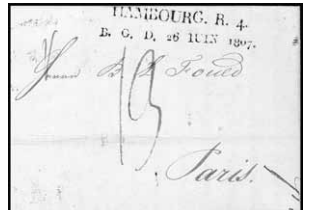 HAMBOURG. R. 4.
B. G. D. 26 IUIN 1807.
B L Fould
13
Paris.